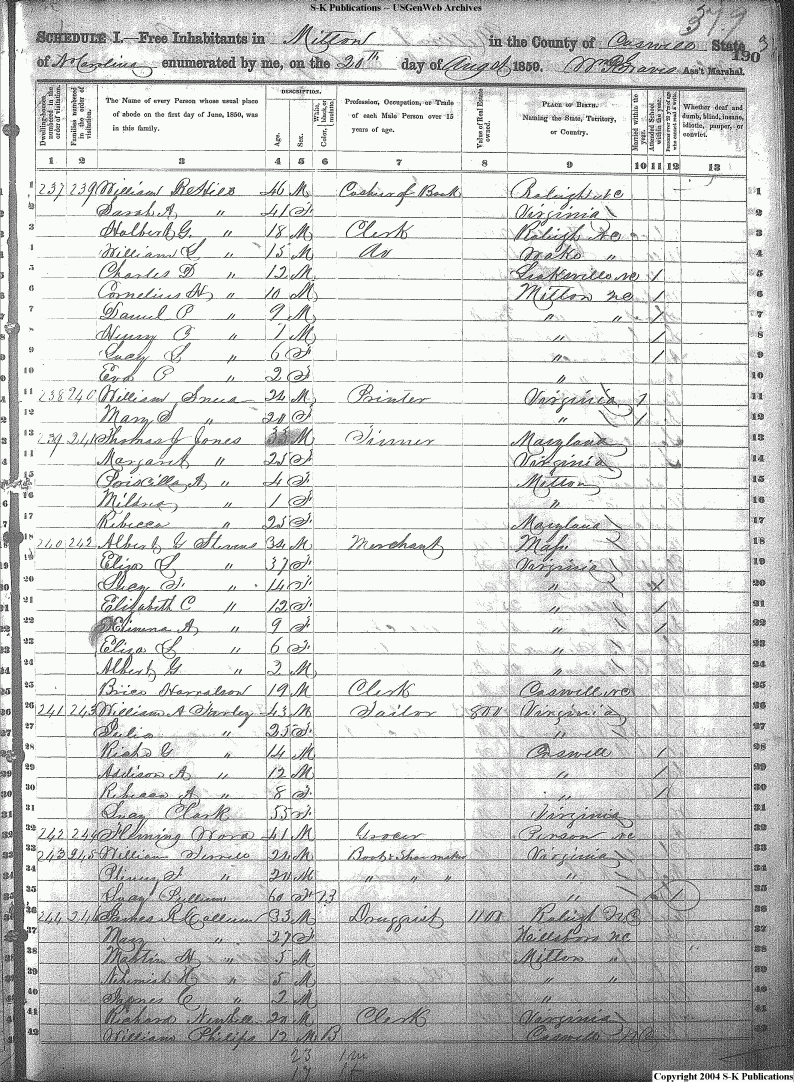 S-K Publications -- USGenWeb Archives
379
SCHEDULE I.—Free Inhabitants in Milton in the County of Caswell State
of No Carolina enumerated by me, on the 20th day of August 1850. Ass't Marshal.
1903
Dwelling-houses numbered in the order of visitation.
Families numbered in the order of visitation.
The Name of every Person whose usual place of abode on the first day of June, 1850, was in this family.
DESCRIPTION.
Age.
Sex.
White, black, or mulatto.
Color,
Profession, Occupation, or Trade of each Male Person over 15 years of age.
Value of Real Estate owned.
PLACE OF BIRTH.
Naming the State, Territory, or Country.
Married within the year.
Attended School within the year.
Persons over 20 y'rs of age who cannot read & write.
Whether deaf and dumb, blind, insane, idiotic, pauper, or convict.
1 2 3 4 5 6 7 8 9 10 11 12 13
1 237 239 William 46 M Cashier of Bank Raleigh NC 1
2 Sarah A " 41 F Virginia 2
3 Halbert G " 18 M Clerk Raleigh NC 3
4 William L " 15 M " 4
5 Charles D " 12 M Leaksville NC 1 5
6 Cornelius H " 10 M Milton NC 1 6
7 Daniel P " 9 M " " 1 7
8 Henry " M " 1 8
9 Lucy S " 6 F " 1 9
10 Eva P " 2 F " 10
11 238 240 William 24 M Printer Virginia 1 11
12 Mary S " 20 F " 1 12
13 239 241 Thomas J Jones 35 M Tinner Maryland 13
14 Margaret " 25 F Virginia 14
15 Priscilla A " 4 F Milton 15
16 Mildred " 1 F " 16
17 Rebecca " 25 F Maryland 17
18 240 242 Albert G Stevens 34 M Merchant Mass. 18
19 Eliza S " 37 F Virginia 19
20 Lucy F " 14 F " 20
21 Elizabeth C " 12 F " 1 21
22 A " 9 F " 1 22
23 Eliza S " 6 F " 23
24 Albert G " 2 M " 24
25 Brice Harralson 19 M Clerk Caswell NC 25
26 241 243 William A 43 M Tailor 800 Virginia 26
27 Julia " 35 F " 27
28 Richd G " 14 M Caswell 1 28
29 Addison A " 12 M " 1 29
30 Rebecca A " 8 F " 1 30
31 Lucy Clark 55 F Virginia 31
32 242 244 Fleming Word 41 M Grocer Person NC 32
33 243 245 William Terrell 24 M Boot & Shoemaker Virginia 33
34 " 20 M " " " " 34
35 Lucy 60 F B " 1 35
36 244 246 James R Callum 33 M Druggist 1100 Raleigh NC 36
37 Mary " 27 F Hillsboro NC 37
38 Martin H " 5 M Milton " 38
39 Nehemiah H " 5 M " " 39
40 James C " 2 M " 40
41 Richard 20 M Clerk Virginia 41
42 William Philips 12 M B Caswell NC 42
23
17
Copyright 2004 S-K Publications